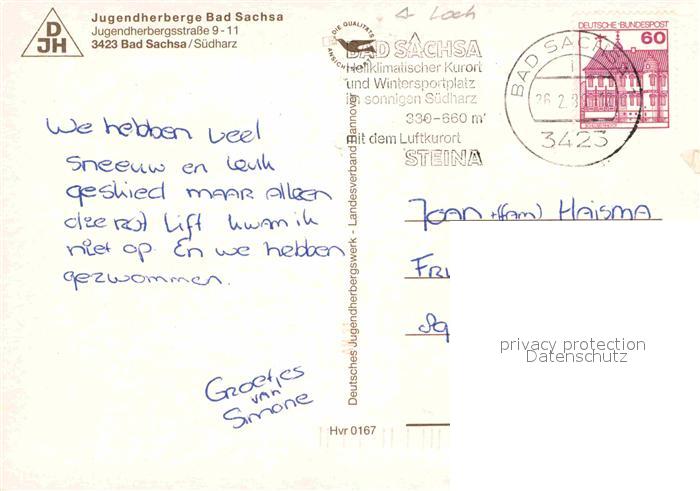 DJH
Jugendherberge Bad Sachsa
Jugendherbergsstraße 9-11
3423 Bad Sachsa/Südharz
We hebben veel
sneeuw en leuk
geskied maar alleen
die rot lift kwam ik
niet op. En we hebben
gezwommen.
Groetjes
van
Simone
Deutsches Jugendherbergswerk - Landesverband Hannover
Hvr 0167
DIE QUALITÄTS
BAD SACHSA
Heilklimatischer Kurort
und Wintersportplatz
im sonnigen Südharz
330-660 m
mit dem Luftkurort
STEINA
BAD SACHSA
26.2.8
3423
DEUTSCHE BUNDESPOST
60
Joan +(fam) Haisma
privacy protection
Datenschutz